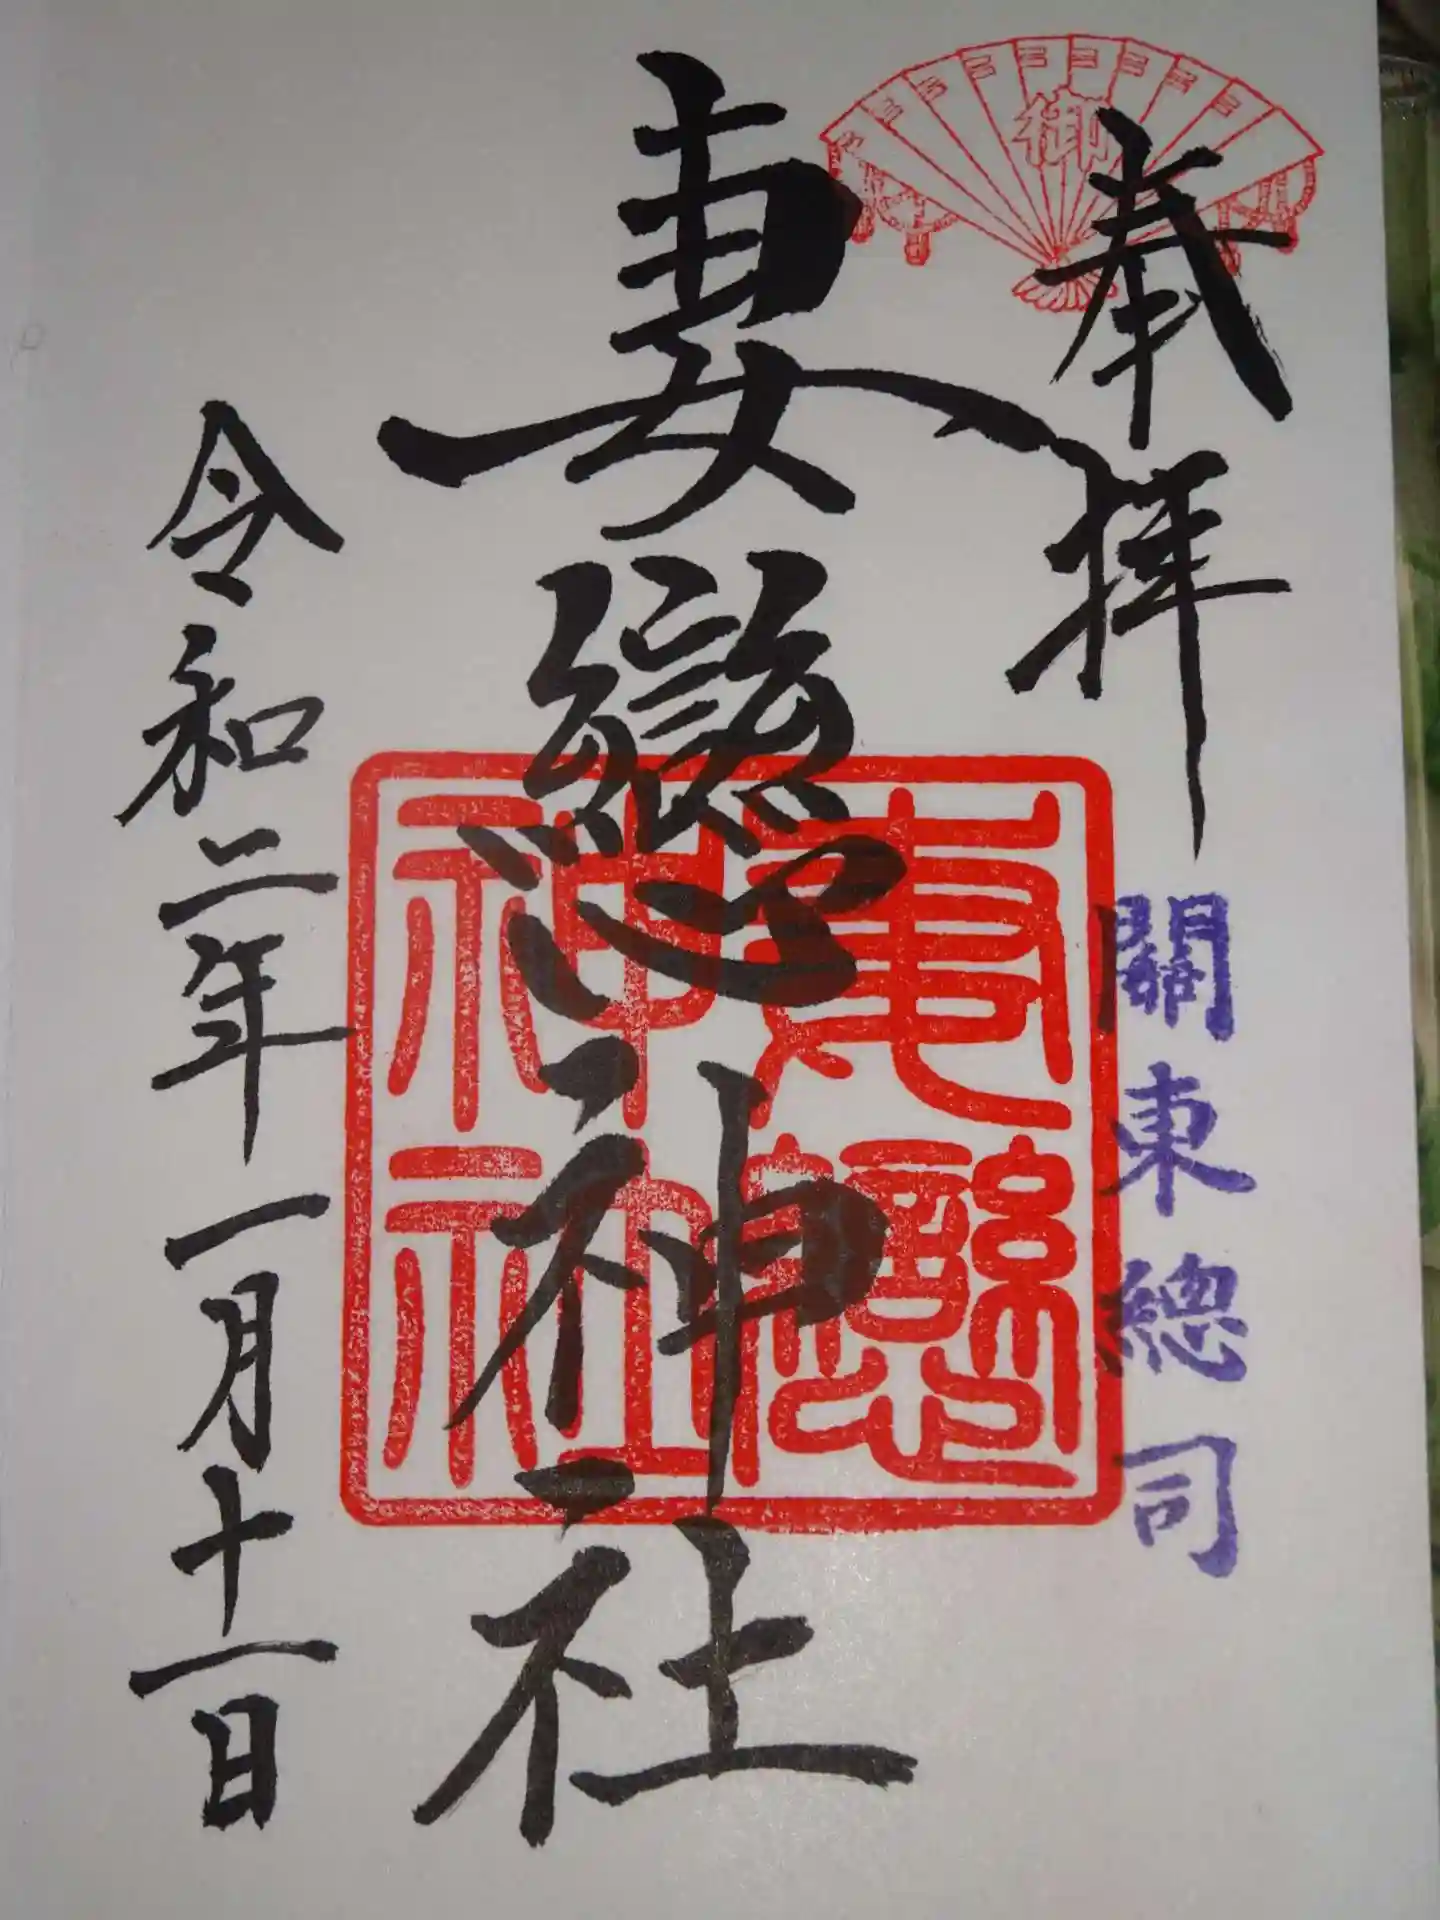 奉拝
御
關東総司
妻戀神社
妻戀神社
令和二年一月十一日